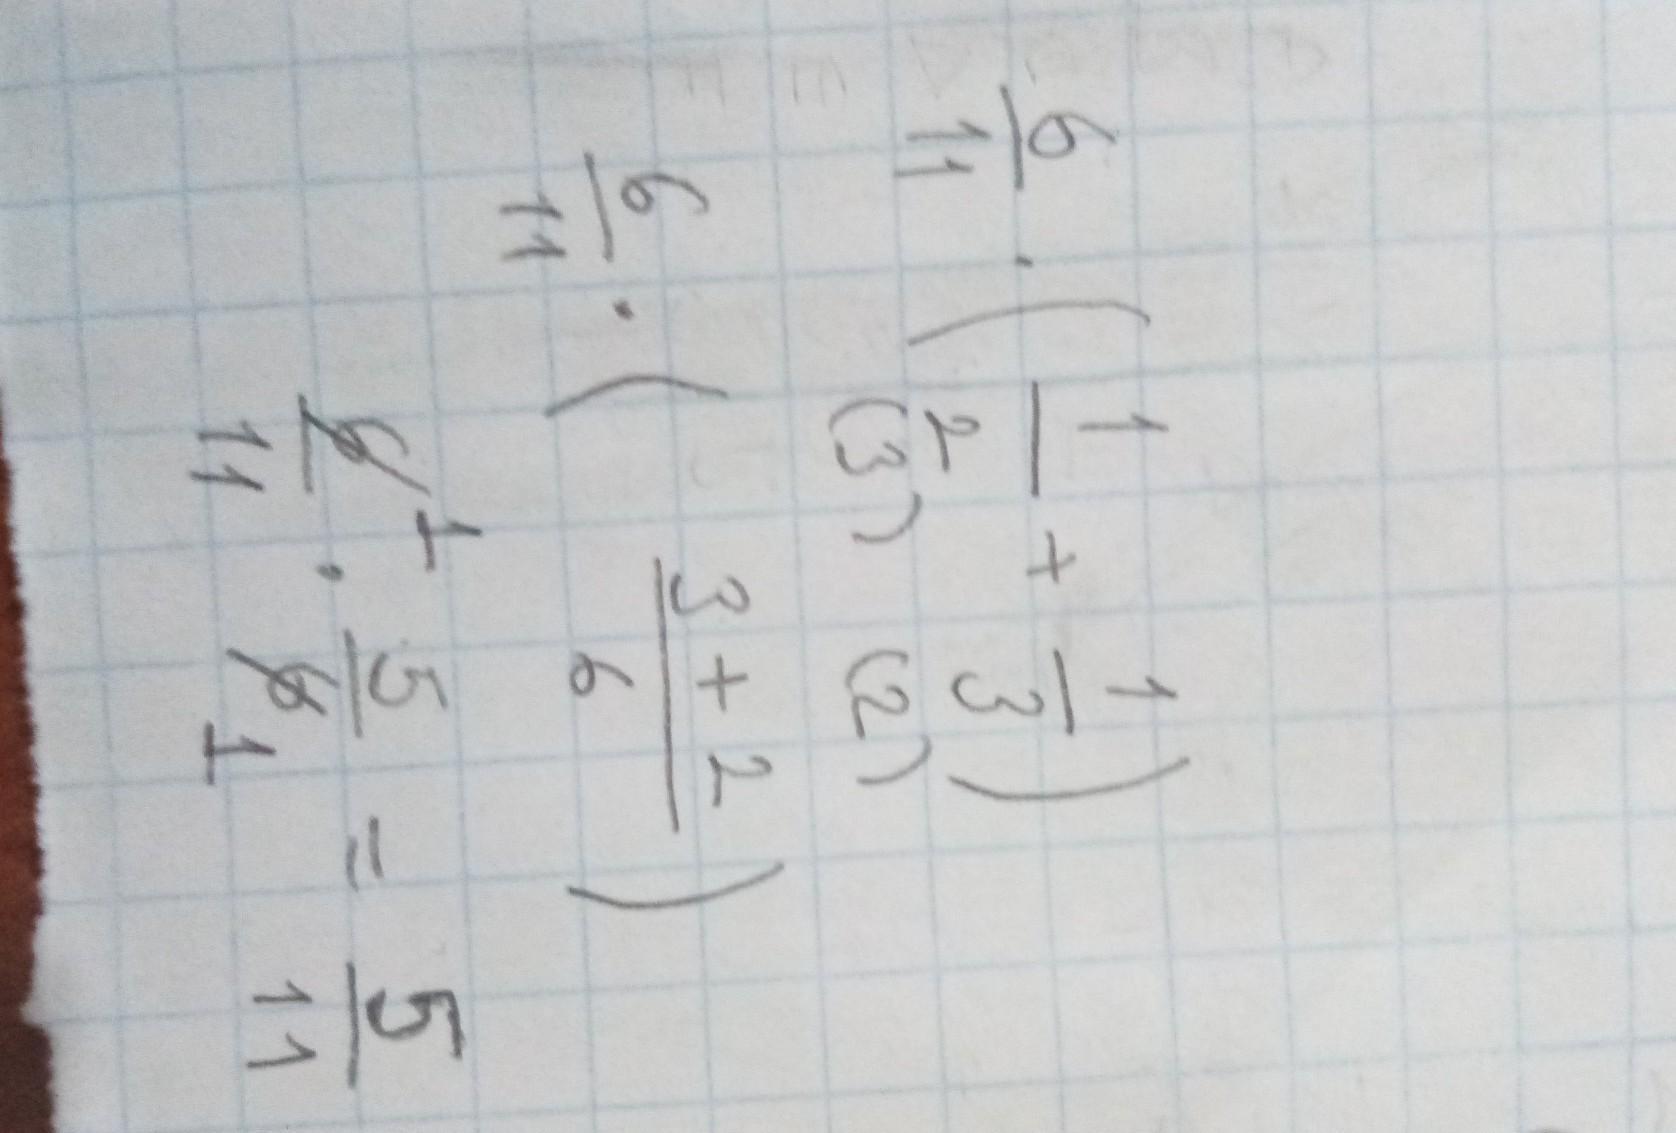 6/11 · (1/2 + 1/3)
(3) (2)
6/11 · (3+2/6)
6/11 1 · 5/6 1 = 5/11